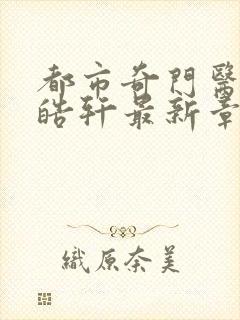 都市奇門醫
皓軒最新章
織原奈美